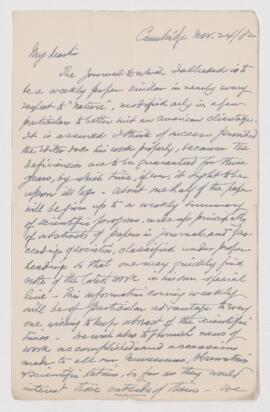 Cambridge Nov. 24/82
My dear Sir
The Journal to which I alluded is to
be a weekly paper similar in nearly every
respect to "Nature", modified only in a few
particulars to better suit an American clientage.
It is assured I think of success provided
the Editor does his work properly, because the
deficiencies are to be guaranteed for three
years, by which time, if ever, it ought to be
upon its legs - About one half of the paper
will be given up to a weekly summary
of scientific progress, made up principally
of abstracts of papers in journals and pro-
ceedings of societies, classified under proper
headings so that one may quickly find
note of the latest work in his own special
line - This information coming weekly
will be of particular advantage to every
one wishing to keep abreast of the scientific
times - 
news of
work accomplished and accessions
made to all our museums, observatories
& scientific stations, so far as they would
interest those outside of them - We